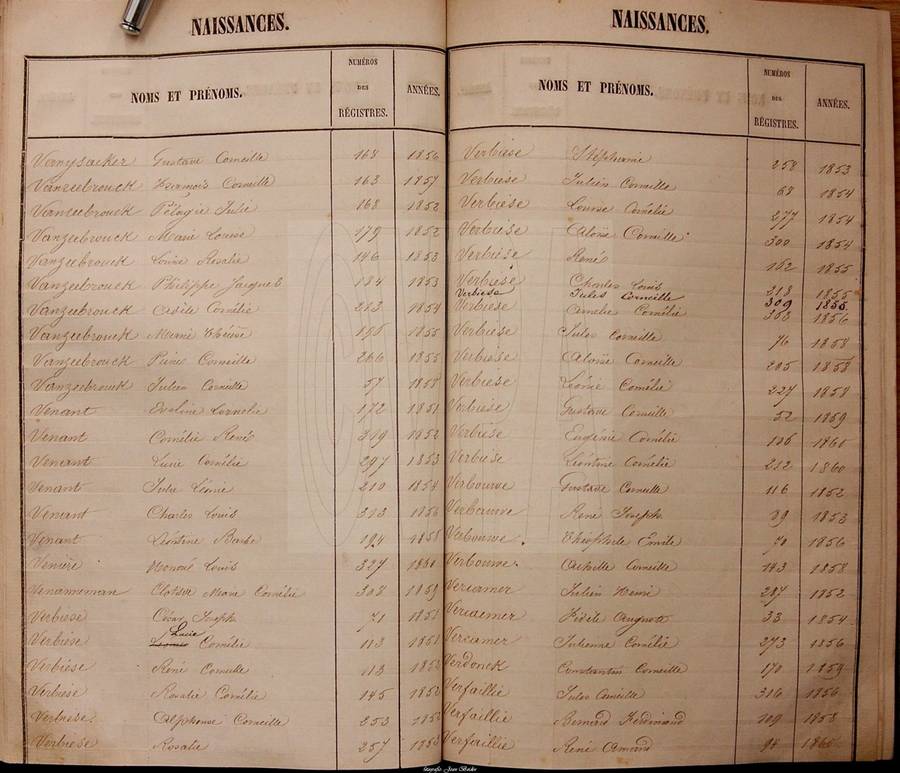 NAISSANCES.
NOMS ET PRÉNOMS. NUMÉROS DES RÉGISTRES. ANNÉES.
Gustave Corneille 168 1856
Vanzeebrouck Corneille 163 1857
Vanzeebrouck Pélagie Julie 168 1852
Vanzeebrouck Marie Louise 179 1852
Vanzeebrouck Louise Rosalie 146 1853
Vanzeebrouck Philippe Jacques 184 1853
Vanzeebrouck Cornélie 263 1854
Vanzeebrouck 1855
Vanzeebrouck Corneille 266 1855
Vanzeebrouck Julien Corneille 57 1858
Venant Eveline Cornelie 172 1851
Venant Cornélie René 309 1852
Venant Cornélie 297 1853
Venant Julie Léonie 210 1854
Venant Charles Louis 1856
Venant Léontine Barbe 194 1858
Honoré Louis 327
Marie Cornélie 308 1859
Verbièse César Joseph 71 1851
Verbièse Lucie Cornélie 113 1851
Verbièse René Corneille 113 1852
Verbièse Rosalie Cornélie 145 1852
Verbièse Alphonse Corneille 253 1852
Verbièse Rosalie 257 1853
NAISSANCES.
NOMS ET PRÉNOMS. NUMÉROS DES RÉGISTRES. ANNÉES.
Verbièse Stéphanie 258 1853
Verbièse Julien Corneille 68 1854
Verbièse Louise Cornélie 277 1854
Verbièse Aloïse Corneille 300 1854
Verbièse René 162 1855
Verbièse Charles Louis 318 1855
Verbièse Jules Corneille 309 1856
Verbièse Amélie Cornélie 363 1856
Verbièse Jules Corneille 76 1858
Verbièse Aloïse Corneille 205 1858
Verbièse Léonie Cornélie 227 1858
Verbièse Gustave Corneille 52 1859
Verbièse Eugénie Cornélie 106 1860
Verbièse Léontine Cornélie 252 1860
Verbouwe Gustave Corneille 116 1852
Verbouwe René Joseph 29 1853
Verbouwe Théophile Emile 70 1856
Verbouwe Achille Corneille 143 1858
Vercamer Julien Henri 287 1852
Vercamer Fidèle Auguste 33 1854
Vercamer Julienne Cornélie 273 1856
Verdonck Constantin Corneille 170 1859
Verfaillie Jules Corneille 316 1856
Verfaillie Bernard Ferdinand 109 1858
Verfaillie René Armand 98 1860